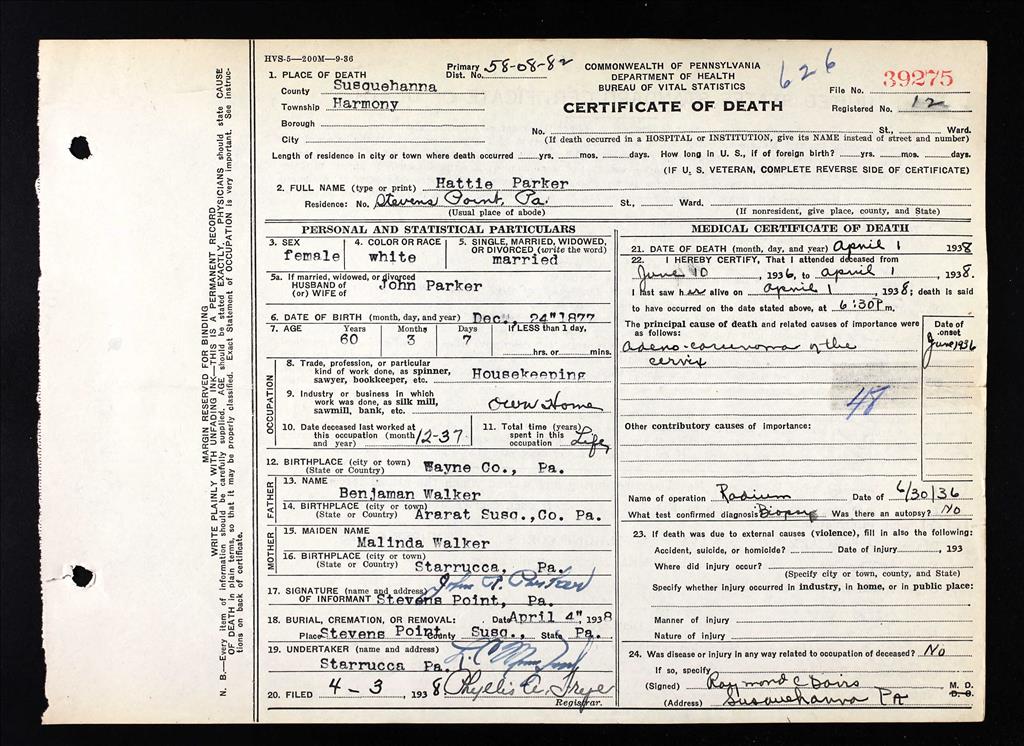 HVS-5—200M—9-36
Primary Dist. No. 58-08-82
COMMONWEALTH OF PENNSYLVANIA
DEPARTMENT OF HEALTH
BUREAU OF VITAL STATISTICS
CERTIFICATE OF DEATH
626
39275
File No.
Registered No. 12
1. PLACE OF DEATH
County Susquehanna
Township Harmony
Borough
City
No. St., Ward.
(If death occurred in a HOSPITAL or INSTITUTION, give its NAME instead of street and number)
Length of residence in city or town where death occurred yrs. mos. days. How long in U. S., if of foreign birth? yrs. mos. days.
(IF U. S. VETERAN, COMPLETE REVERSE SIDE OF CERTIFICATE)
2. FULL NAME (type or print) Hattie Parker
Residence: No. Stevens Point, Pa. St., Ward.
(Usual place of abode) (If nonresident, give place, county, and State)
PERSONAL AND STATISTICAL PARTICULARS
3. SEX female
4. COLOR OR RACE white
5. SINGLE, MARRIED, WIDOWED, OR DIVORCED (write the word) married
5a. If married, widowed, or divorced
HUSBAND of (or) WIFE of John Parker
6. DATE OF BIRTH (month, day, and year) Dec., 24" 1877
7. AGE Years 60 Months 3 Days 7 If LESS than 1 day, hrs. or mins.
OCCUPATION
8. Trade, profession, or particular kind of work done, as spinner, sawyer, bookkeeper, etc. Housekeeping
9. Industry or business in which work was done, as silk mill, sawmill, bank, etc. Own Home
10. Date deceased last worked at this occupation (month and year) 12-37
11. Total time (years) spent in this occupation Life
12. BIRTHPLACE (city or town) (State or Country) Wayne Co., Pa.
FATHER
13. NAME Benjaman Walker
14. BIRTHPLACE (city or town) (State or Country) Ararat Susq.,Co. Pa.
MOTHER
15. MAIDEN NAME Malinda Walker
16. BIRTHPLACE (city or town) (State or Country) Starrucca, Pa.
17. SIGNATURE (name and address) OF INFORMANT John Parker Stevens Point, Pa.
18. BURIAL, CREMATION, OR REMOVAL: Date April 4" 1938
Place Stevens Point County Susq., State Pa.
19. UNDERTAKER (name and address)
Starrucca Pa.
20. FILED 4-3, 1938 Phyllis
Registrar.
MEDICAL CERTIFICATE OF DEATH
21. DATE OF DEATH (month, day, and year) April 1 1938
22. I HEREBY CERTIFY, That I attended deceased from
June 10, 1936, to April 1, 1938.
I last saw her alive on April 1, 1938; death is said
to have occurred on the date stated above, at 6:30 P m.
The principal cause of death and related causes of importance were as follows:
Date of onset
Adeno-carcinoma of the cervix
June, 1936
48
Other contributory causes of importance:
Name of operation Radium Date of 6/30/36
What test confirmed diagnosis? Biopsy Was there an autopsy? No
23. If death was due to external causes (violence), fill in also the following:
Accident, suicide, or homicide? Date of injury , 193
Where did injury occur?
(Specify city or town, county, and State)
Specify whether injury occurred in industry, in home, or in public place:
Manner of injury
Nature of injury
24. Was disease or injury in any way related to occupation of deceased? No
If so, specify
(Signed) Raymond C Davis M. D.
D. O.
(Address) Susquehanna Pa
MARGIN RESERVED FOR BINDING
WRITE PLAINLY WITH UNFADING INK—THIS IS A PERMANENT RECORD
N. B.—Every item of information should be carefully supplied. AGE should be stated EXACTLY. PHYSICIANS should state CAUSE
OF DEATH in plain terms, so that it may be properly classified. Exact Statement of OCCUPATION is very important. See instruc-
tions on back of certificate.